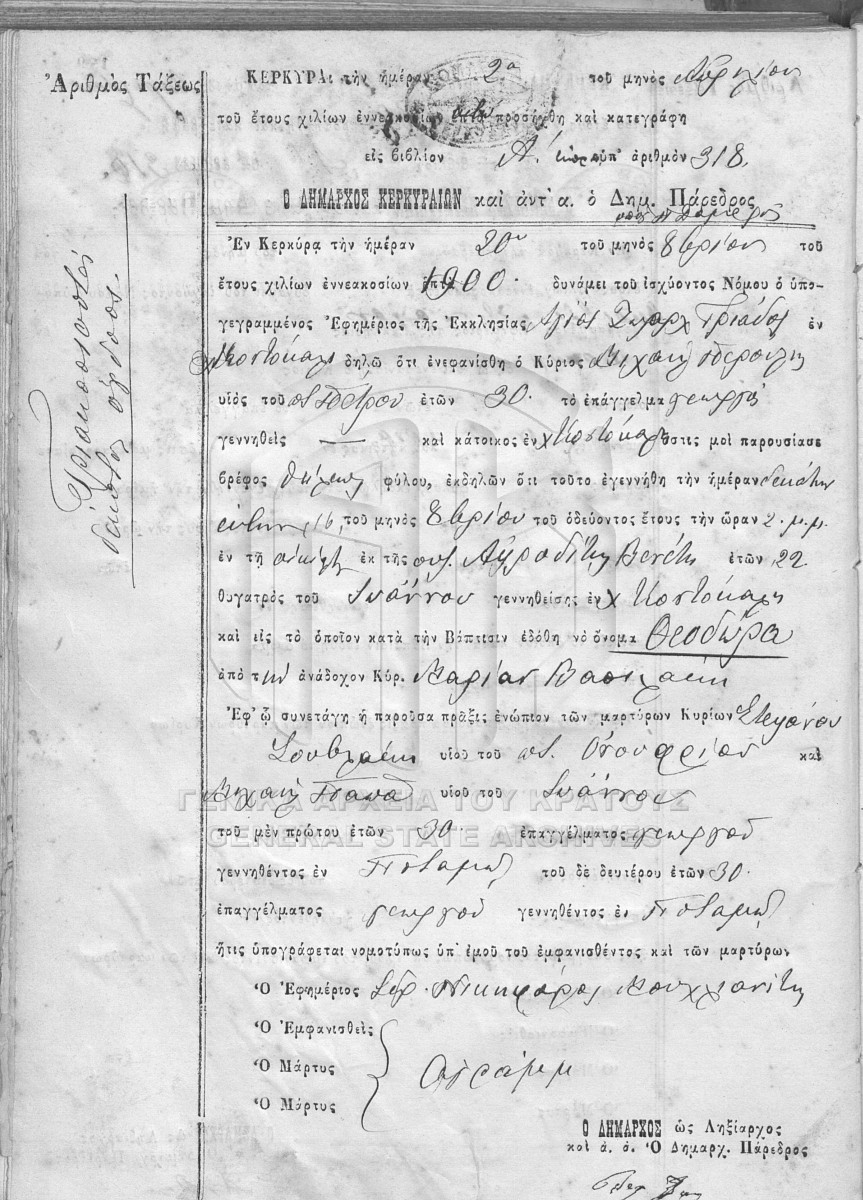 Ἀριθμὸς Τάξεως
ΚΕΡΚΥΡΑι τὴν ἡμέραν 2α τοῦ μηνὸς Ἀπριλίου
τοῦ ἔτους χιλίων ἐννεακοσίων ἑπτὰ προσήχθη καὶ κατεγράφη
εἰς βιβλίον Α. ὑπ' ἀριθμὸν 318.
Ο ΔΗΜΑΡΧΟΣ ΚΕΡΚΥΡΑΙΩΝ καὶ ἀντ' α. ὁ Δημ. Πάρεδρος
Τριακοσιοστὸν
δέκατον ὄγδοον.
Ἐν Κερκύρᾳ τὴν ἡμέραν 20ην τοῦ μηνὸς 8βρίου τοῦ
ἔτους χιλίων ἐννεακοσίων 1900. δυνάμει τοῦ ἰσχύοντος Νόμου ὁ ὑπο-
γεγραμμένος Ἐφημέριος τῆς Ἐκκλησίας Ἁγίας Τριάδος ἐν
Κοντόκαλι δηλῶ ὅτι ἐνεφανίσθη ὁ Κύριος Μιχαὴλ
υἱὸς τοῦ π. Πέτρου ἐτῶν 30. τὸ ἐπάγγελμα γεωργὸς
γεννηθεὶς — καὶ κάτοικος ἐν χ Κοντόκαλι ὅστις μοὶ παρουσίασε
βρέφος θήλεως φύλου, ἐκδηλῶν ὅτι τοῦτο ἐγεννήθη τὴν ἡμέραν δεκάτην
ἕκτην 16, τοῦ μηνὸς 8βρίου τοῦ ὁδεύοντος ἔτους τὴν ὥραν 2. μ.μ.
ἐν τῇ οἰκίᾳ ἐκ τῆς συζ. Ἀφροδίτης Βενέτη ἐτῶν 22
θυγατρὸς τοῦ Ἰωάννου γεννηθείσης ἐν χ Κοντόκαλι
καὶ εἰς τὸ ὁποῖον κατὰ τὴν Βάπτισιν ἐδόθη τὸ ὄνομα Θεοδώρα
ἀπὸ τὴν ἀνάδοχον Κύρ. Μαρίαν Βασιλάκη
Ἐφ' ᾧ συνετάγη ἡ παροῦσα πρᾶξις ἐνώπιον τῶν μαρτύρων Κυρίων Στεφάνου
Σουβλάκη υἱοῦ τοῦ π. Ὀνουφρίου καὶ
Μιχαὴλ Παπᾶ υἱοῦ τοῦ Ἰωάννου
ΓΕΝΙΚΑ ΑΡΧΕΙΑ ΤΟΥ ΚΡΑΤΟΥΣ
τοῦ μὲν πρώτου ἐτῶν 30 ἐπαγγέλματος γεωργοῦ
GENERAL STATE ARCHIVES
γεννηθέντος ἐν Ποταμῷ τοῦ δὲ δευτέρου ἐτῶν 30.
ἐπαγγέλματος γεωργοῦ γεννηθέντος ἐν Ποταμῷ
ἥτις ὑπογράφεται νομοτύπως ὑπ' ἐμοῦ τοῦ ἐμφανισθέντος καὶ τῶν μαρτύρων
Ὁ Ἐφημέριος Ἱερ. Νικηφόρος
Ὁ Ἐμφανισθεὶς
Ὁ Μάρτυς
Ὁ Μάρτυς
Ο ΔΗΜΑΡΧΟΣ ὡς Ληξίαρχος
καὶ ἀ. ἀ. Ὁ Δημαρχ. Πάρεδρος